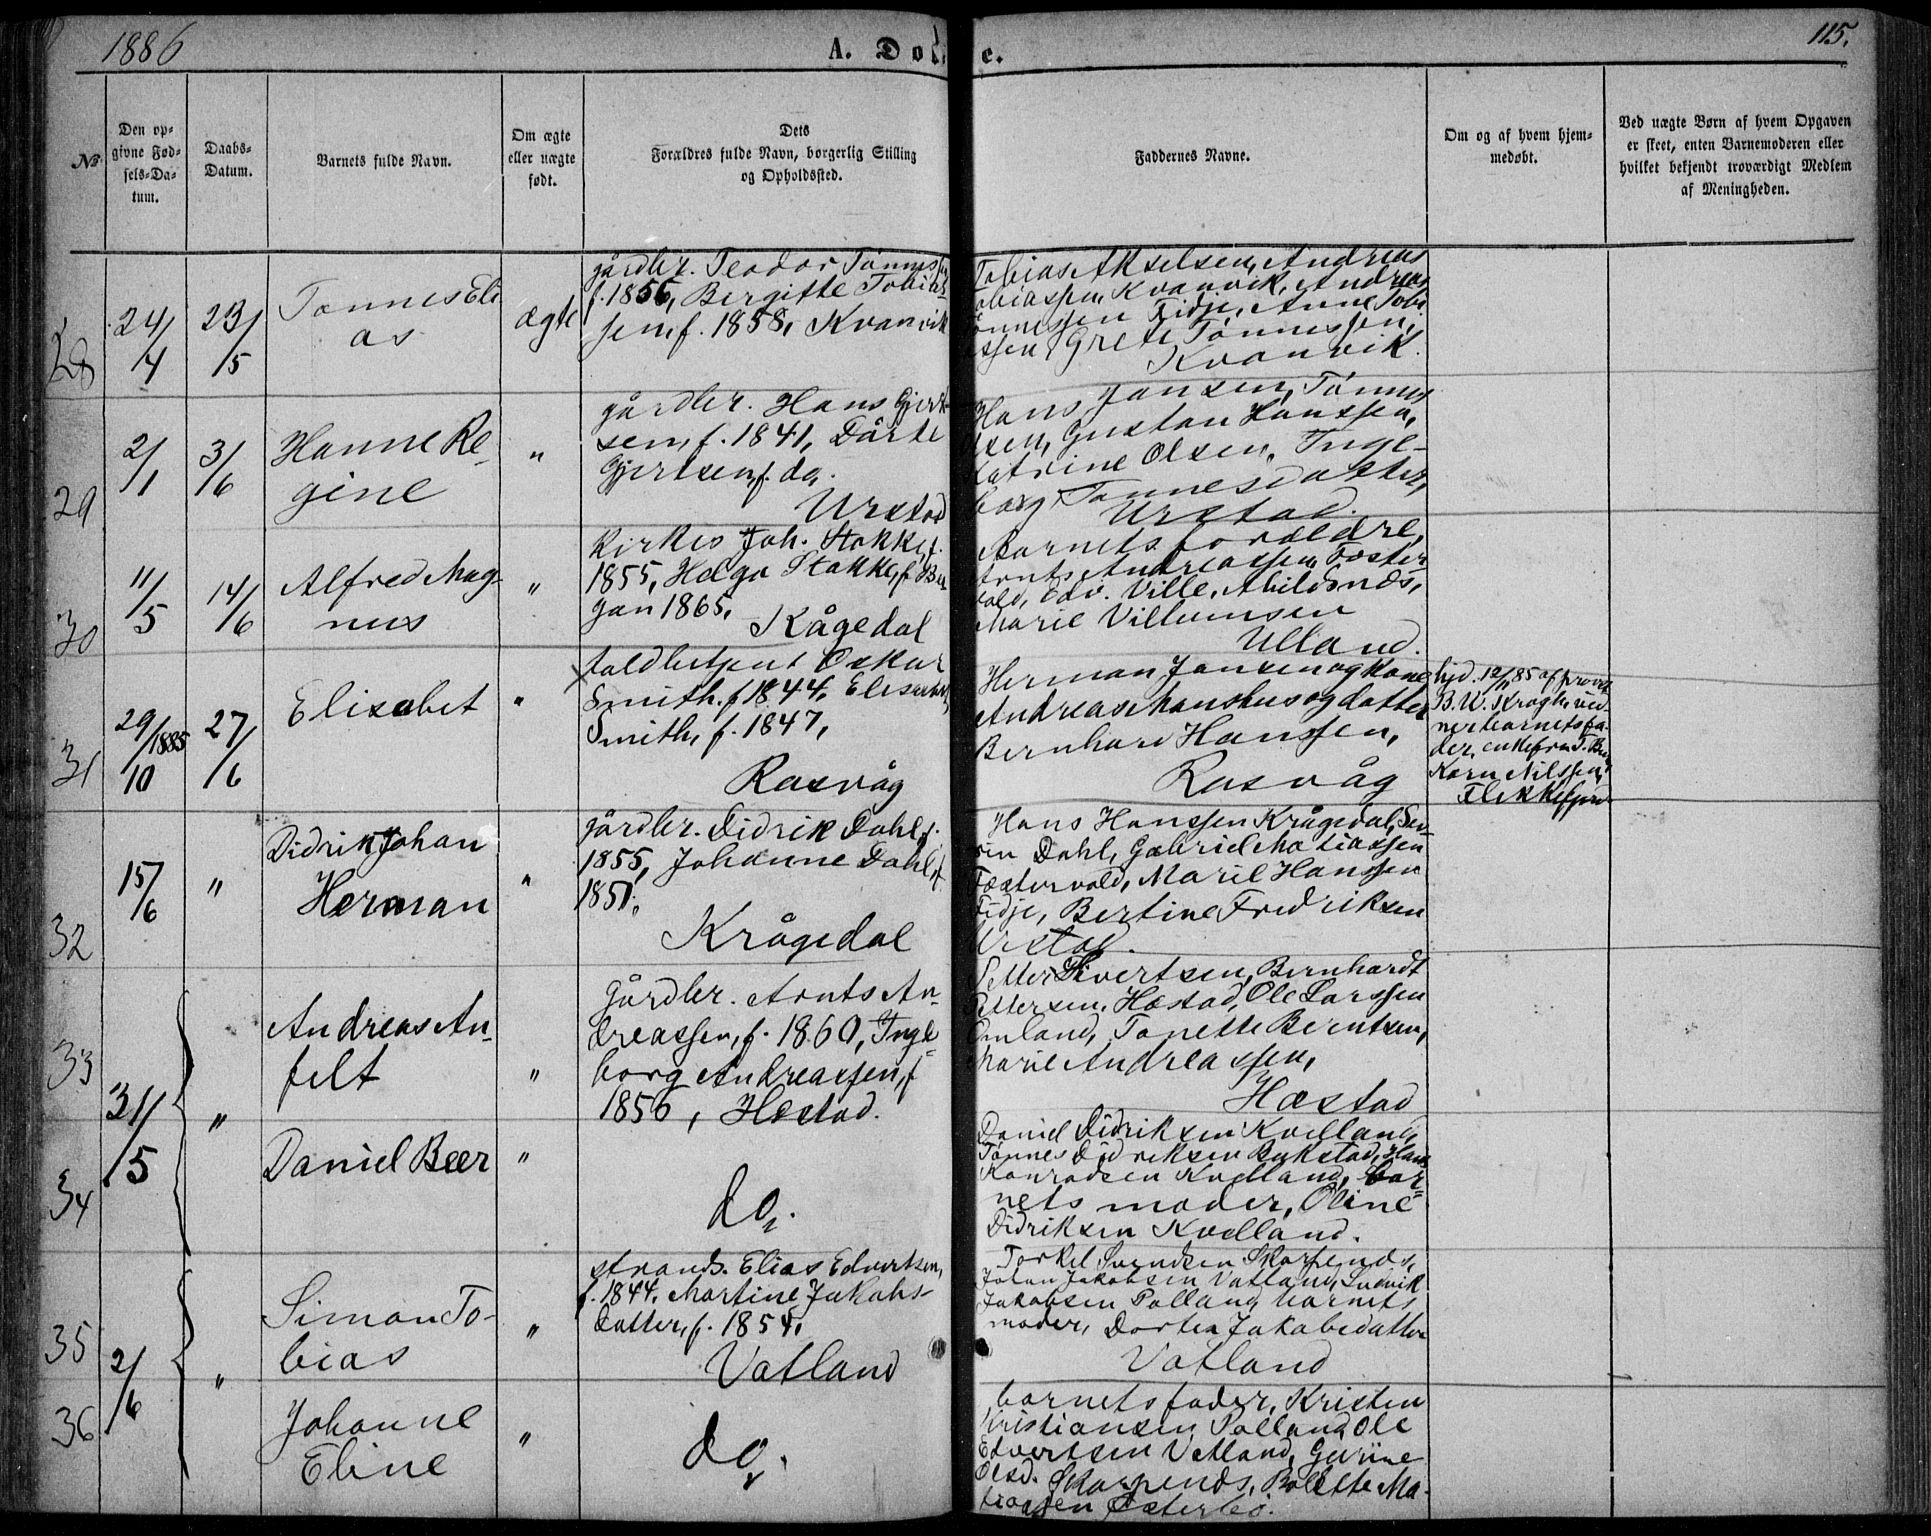 1886
A. Dobe.
115.
No
Den opgivne Fødsels-Datum.
Daabs-Datum.
Barnets fulde Navn.
Om ægte eller uægte født.
Dets Forældres fulde Navn, borgerlig Stilling og Opholdssted.
Faddernes Navne.
Om og af hvem hjemmedøbt.
Ved uægte Børn af hvem Opgaven er skeet, enten Barnemoderen eller hvilket bekjendt troværdigt Medlem af Menigheden.
28
24/4
23/5
Tønnes Eli
as
ægte
gårdbr. Teodor Tønnes
f. 1856, Bergitte Tobias
sen, f. 1858, Kvanvik
Tobias Akselsen, Andreas
Tobiassen Kvanvik, Andreas
Tønnessen Fidje, Anne Tobi
assen, Grete Tønnessen,
Kvanvik.
29
2/1
3/6
Hanne Re-
gine
"
gårdbr. Hans Gjert-
sen, f. 1841, Dårte
Gjertsen, f. do.
Urstad
Hans Jansen, Tønnes
Olsen, Gustav Hanssen,
Katrine Olsen, Inge-
borg Tønnesdatter,
Urstad.
30
11/5
14/6
Alfred Mag-
nus
"
Kirkes Joh. Stakke, f.
1855, Helga Stakke, f. Ber
gan 1865,
Kågedal
Barnets forældre,
Arnts Andreassen Foster
vold, Edv. Ville, Abildsnæs,
Marie Villumsen
Ulland.
31
29/10 1885
27/6
Elisabet
"
toldbetjent Oskar
Smith, f. 1844, Elisabet
Smith, f. 1847,
Rasvåg
Herman Jansen og kone
Andreas Manshus og datter
Bernhard Hanssen,
Rasvåg
hjd. 12/11 85 af provst
B. W. Krogh, vid-
ner barnets fa-
der, enkefru T. Beer
Karn Nilssen,
Flekkefjord
32
15/6
"
Didrik Johan
Herman
"
gårdbr. Didrik Dahl, f.
1855, Johanne Dahl, f.
1851,
Krågedal
Hans Hanssen Krågedal, Sev-
rin Dahl, Gabriel Matiassen
Fostervold, Marie Hanssen
Fidje, Bertine Fredriksen
Urstad.
33
31/5
"
Andreas An-
felt
"
gårdbr. Arnts An-
dreassen, f. 1860, Inge-
borg Andreassen, f.
1856, Hæstad.
Petter Sivertsen, Bernhardt
Pettersen, Hæstad, Ole Larssen
Omland, Tonette Berntsen,
Marie Andreassen,
Hæstad
34
Daniel Beer
"
do.
Daniel Didriksen Kvelland,
Tønnes Didriksen Bukstad, Hans
Konradsen Kvelland, bar-
nets moder, Oline
Didriksen Kvelland.
35
2/6
"
Simon To-
bias
"
strands. Elias Edvertsen,
f. 1844, Martine Jakobs-
datter, f. 1854,
Vatland
Torkel Svendsen Skarpends,
Johan Jakobsen Vatland, Ludvik
Jakobsen Polland, barnets
moder, Dortea Jakobsdatter
Vatland
36
Johanne
Eline
"
do.
barnets fader, Kristen
Kristiansen Polland, Ole
Edvertsen Vatland, Gurine
Olsd. Skarpends, Bolette Ma-
tiassen Østerbø.